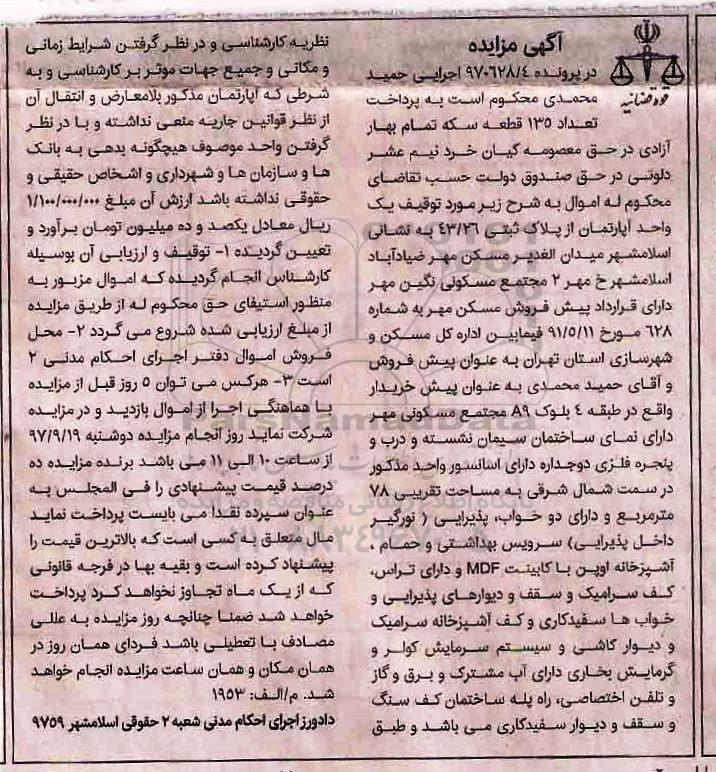 آگهی مزایده
قوه قضائیه
در پرونده ۹۷۰۶۲۸/۴ اجرایی حمید
محمدی محکوم است به پرداخت
تعداد ۱۳۵ قطعه سکه تمام بهار
آزادی در حق معصومه کیان خرد نیم عشر
دلوتی در حق صندوق دولت حسب تقاضای
محکوم له اموال به شرح زیر مورد توقیف یک
واحد آپارتمان از پلاک ثبتی ۴۳/۲۶ به نشانی
اسلامشهر میدان الغدیر مسکن مهر ضیادآباد
اسلامشهر خ مهر ۲ مجتمع مسکولی نگین مهر
دارای قرارداد پیش فروش مسکن مهر به شماره
۶۲۸ مورخ ۹۱/۵/۱۱ فیمابین اداره کل مسکن و
شهرسازی استان تهران به عنوان پیش فروش
و آقای حمید محمدی به عنوان پیش خریدار
واقع در طبقه ۴ بلوک A۹ مجتمع مسکونی مهر
دارای نمای ساختمان سیمان نشسته و درب و
پنجره فلزی دوجداره دارای اسانسور واحد مذکور
در سمت شمال شرقی به مساحت تقریبی ۷۸
مترمربع و دارای دو خواب، پذیرایی ( نورگیر
داخل پذیرایی) سرویس بهداشتی و حمام ،
آشپزخانه اوپن با کابینت MDF و دارای تراس،
کف سرامیک و سقف و دیوارهای پذیرایی و
خواب ها سفیدکاری و کف آشپزخانه سرامیک
و دیوار کاشی و سیستم سرمایش کولر و
گرمایش بخاری دارای آب مشترک و برق و گاز
و تلفن اختصاصی، راه پله ساختمان کف سنگ
و سقف و دیوار سفیدکاری می باشد و طبق
نظریه کارشناسی و در نظر گرفتن شرایط زمانی
و مکانی و جمیع جهات موثر بر کارشناسی و به
شرطی که آپارتمان مذکور بلامعارض و انتقال آن
از نظر قوانین جاریه منعی نداشته و با در نظر
گرفتن واحد موصوف هیچگونه بدهی به بانک
ها و سازمان ها و شهرداری و اشخاص حقیقی و
حقوقی نداشته باشد ارزش آن مبلغ ۱/۱۰۰/۰۰۰/۰۰۰
ریال معادل یکصد و ده میلیون تومان برآورد و
تعیین گردیده ۱- توقیف و ارزیابی آن بوسیله
کارشناس انجام گردیده که اموال مزبور به
منظور استیفای حق محکوم له از طریق مزایده
از مبلغ ارزیابی شده شروع می گردد ۲- محل
فروش اموال دفتر اجرای احکام مدنی ۲
است ۳- هرکس می توان ۵ روز قبل از مزایده
با هماهنگی اجرا از اموال بازدید و در مزایده
شرکت نماید روز انجام مزایده دوشنبه ۹۷/۹/۱۹
از ساعت ۱۰ الی ۱۱ می باشد برنده مزایده ده
درصد قیمت پیشنهادی را فی المجلس به
عنوان سپرده نقدا می بایست پرداخت نماید
مال متعلق به کسی است که بالاترین قیمت را
پیشنهاد کرده است و بقیه بها در فرجه قانونی
که از یک ماه تجاوز نخواهد کرد پرداخت
خواهد شد ضمنا چنانچه روز مزایده به عللی
مصادف با تعطیلی باشد فردای همان روز در
همان مکان و همان ساعت مزایده انجام خواهد
شد. م/الف: ۱۹۵۳
دادورز اجرای احکام مدنی شعبه ۲ حقوقی اسلامشهر ۹۷۵۹
ParsNamadData